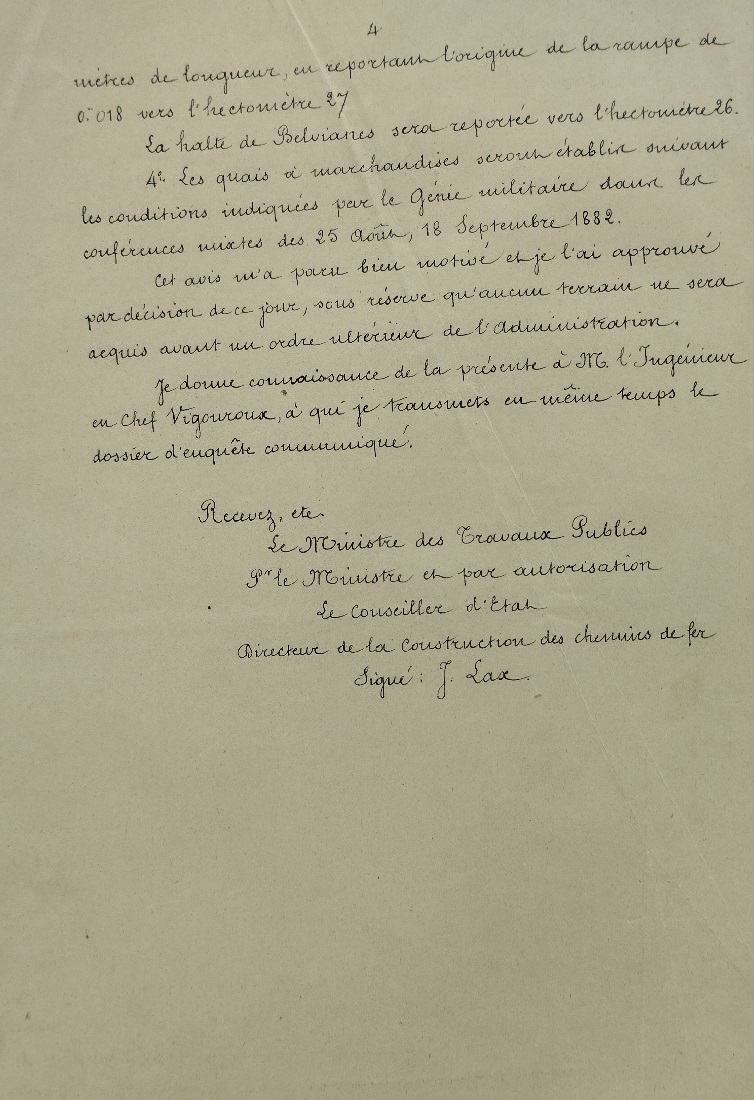 4
mètres de longueur, en reportant l'origine de la rampe de
0.m018 vers l'hectomètre 27
La halte de Belvianes sera reportée vers l'hectomètre 26.
4º. Les quais à marchandises seront établis suivant
les conditions indiquées par le Génie militaire dans les
conférences mixtes des 25 Août, 18 Septembre 1882.
Cet avis m'a paru bien motivé et je l'ai approuvé
par décision de ce jour, sous réserve qu'aucun terrain ne sera
acquis avant un ordre ultérieur de l'Administration.
Je donne connaissance de la présente à M. l'Ingénieur
en Chef Vigouroux, à qui je transmets en même temps le
dossier d'enquête communiqué.
Recevez, etc.
Le Ministre des Travaux Publics
Pr le Ministre et par autorisation
Le Conseiller d'Etat
Directeur de la Construction des chemins de fer
Signé: J. Lax.